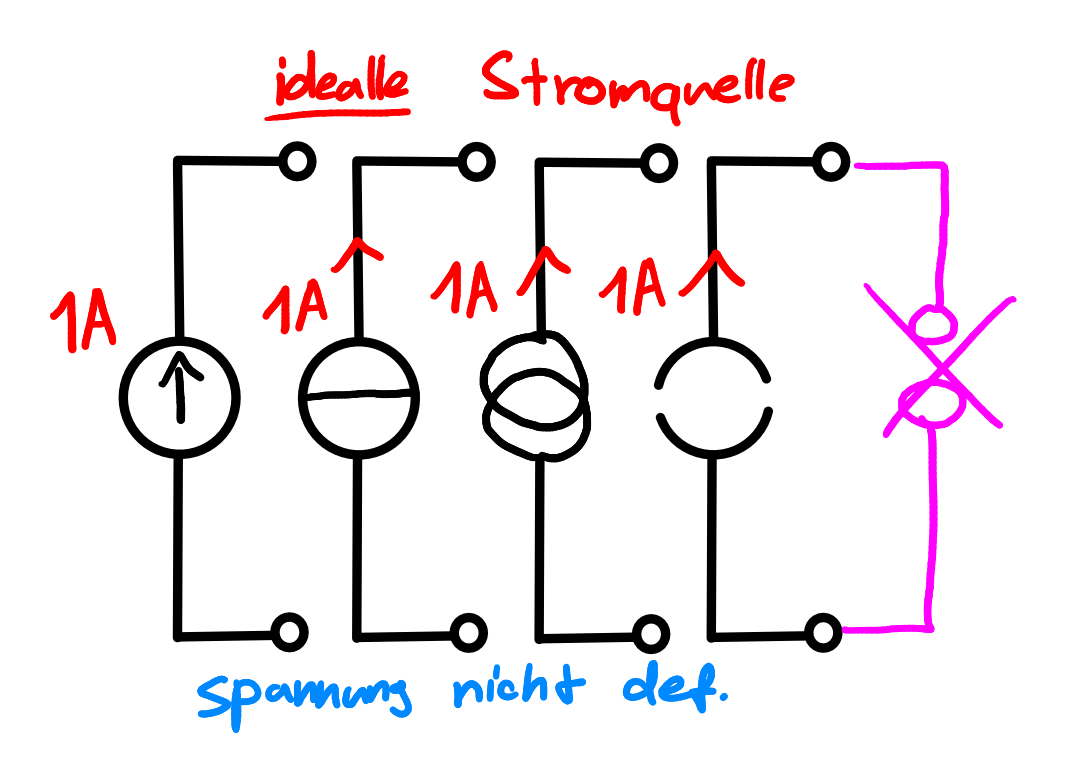 idealle Stromquelle
1A 1A 1A 1A
spannung nicht def.